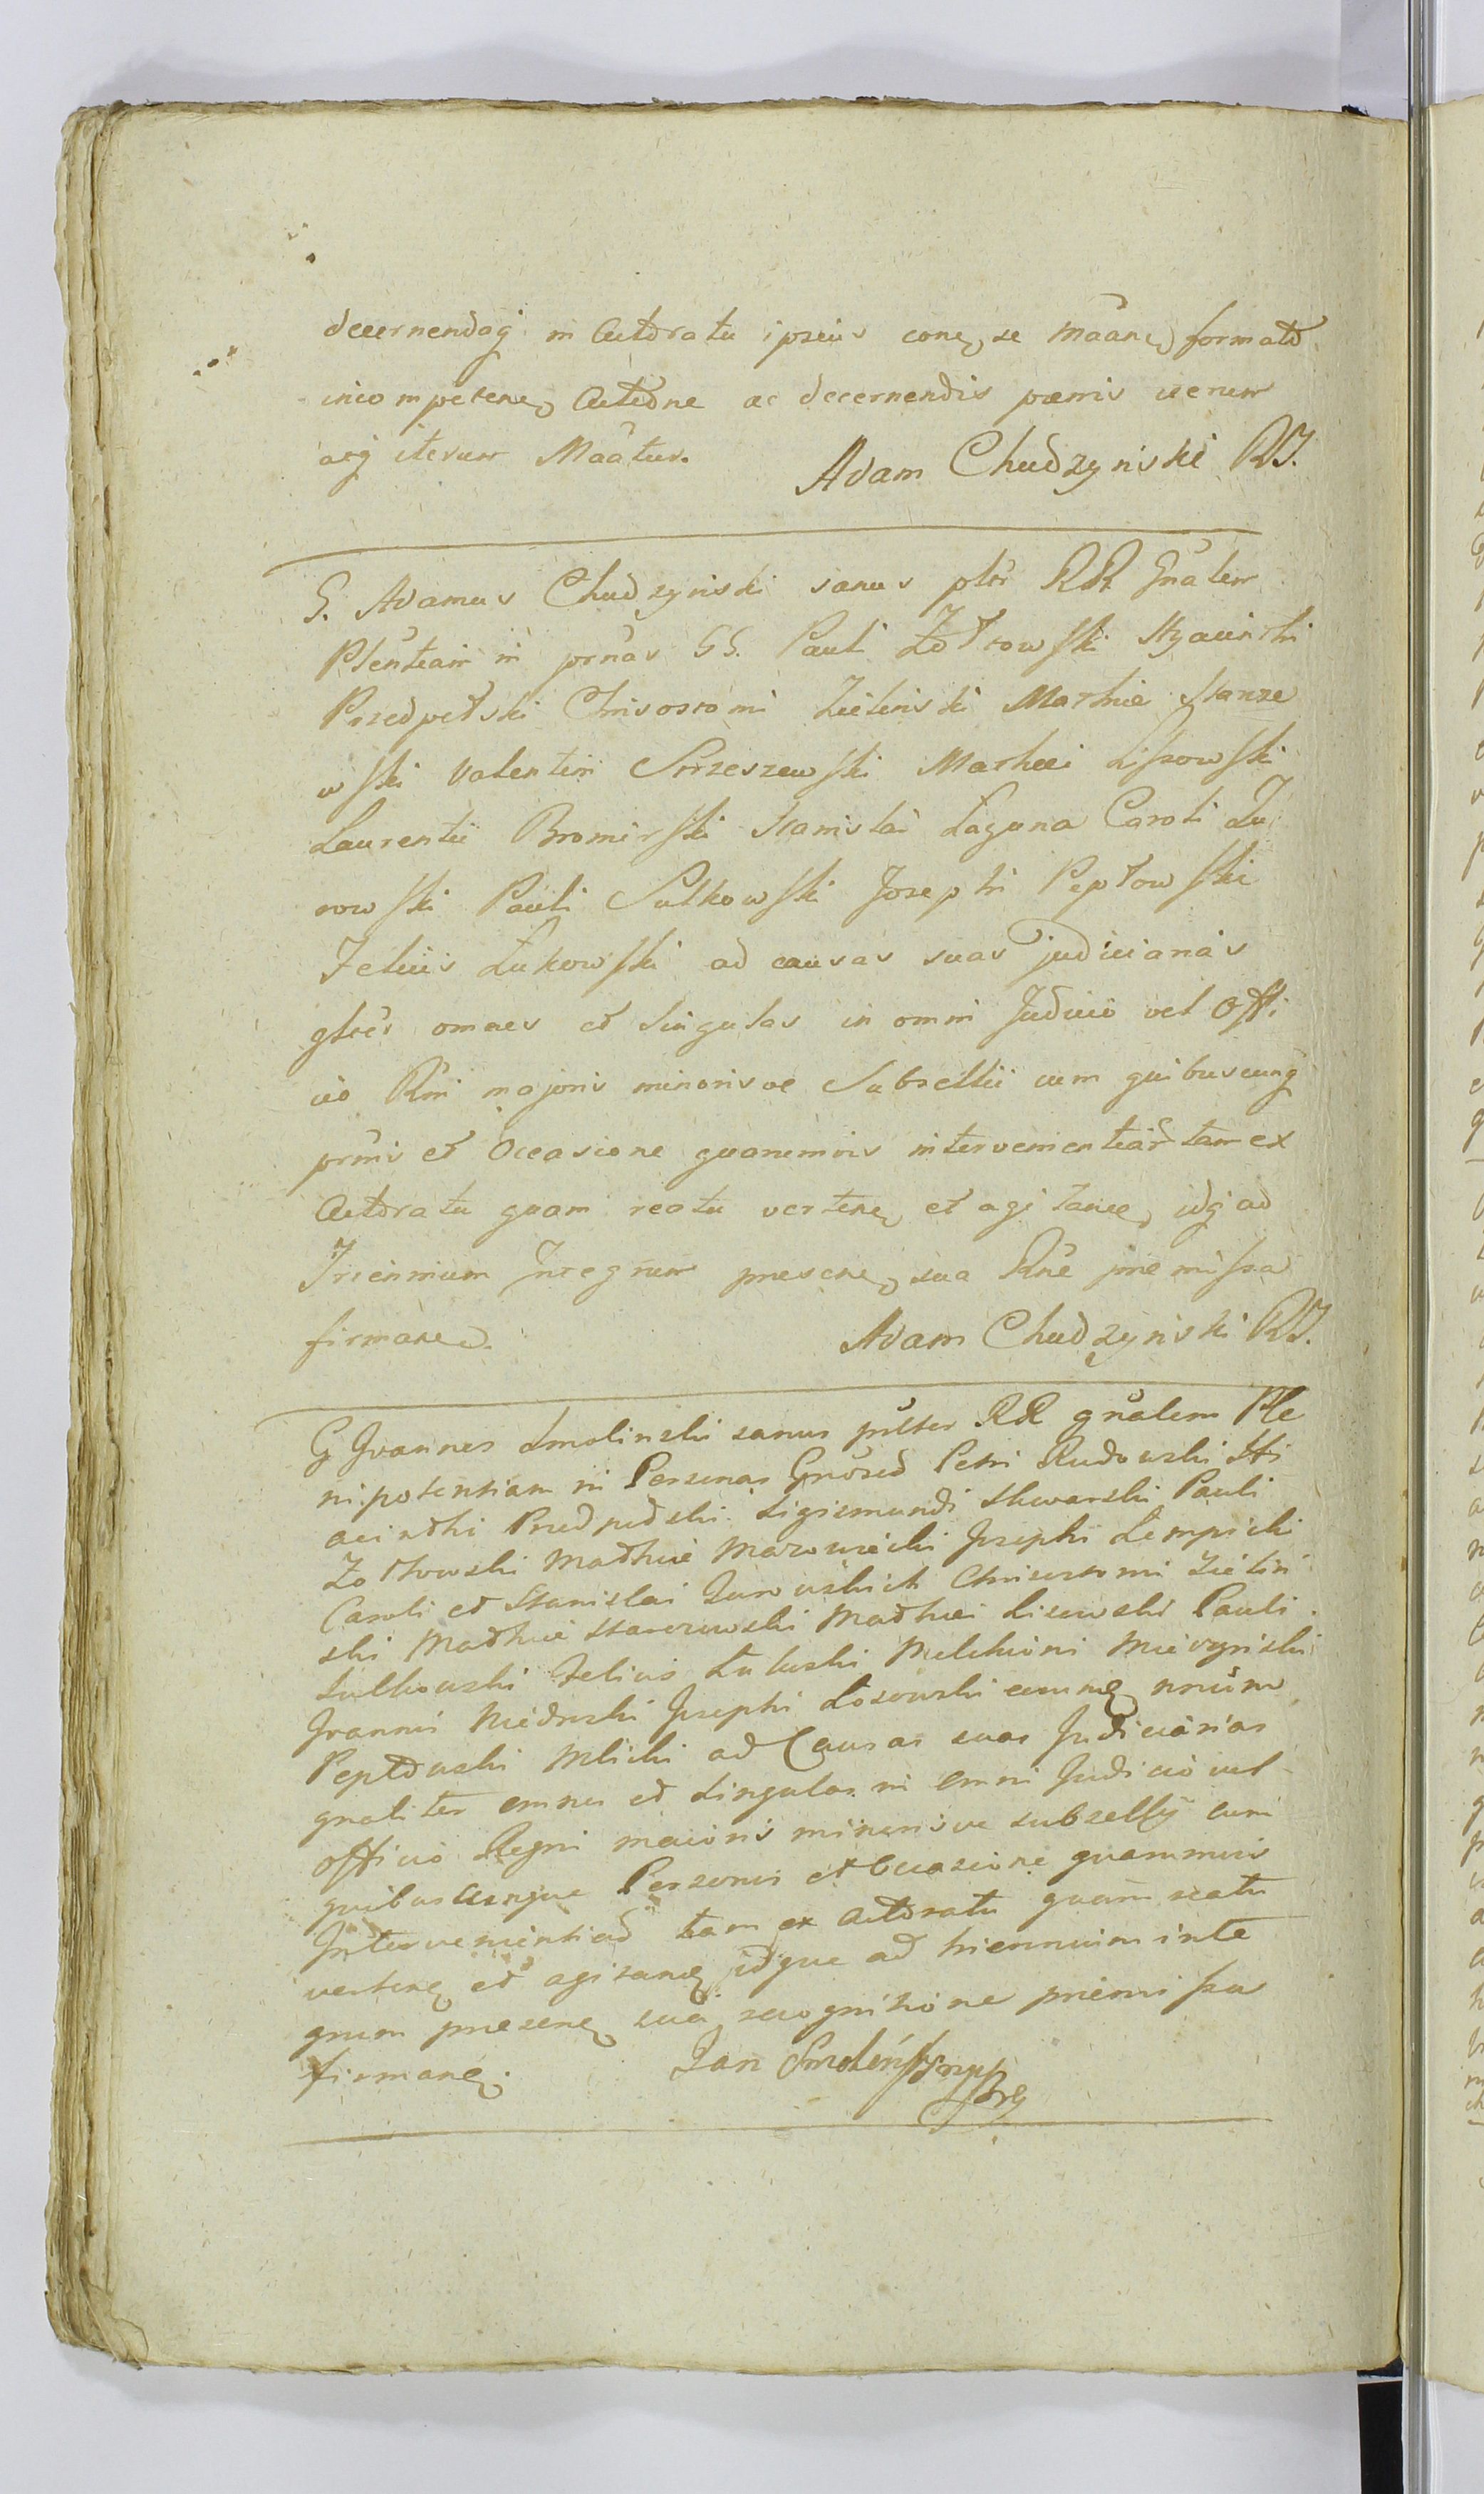 decernendaq in Actoratu ipsius cone, se Maane, formato
incompetene, Actione ac decernendis poenis iterum
atq iterum Maatur.
Adam Chudzynski RJ.
G. Adamus Chudzynski sanus pltr RR Gnalem
Plentiam in prnas GG. Pauli Zołtowski Hyacinthi
Przedpełski Chrisostomi Zielinski Mathiæ Starze
wski Valentini Smrzeszewski Mathei Lissowski
Laurentii Bromirski Stanislai Laguna Caroli Zu
rowski Pauli Sulkowski Josephi Pepłowski
Felicis Łukowski ad causas suas judiciarias
gltes omnes et singulas in omni Judicio vel Offi
cio Rni majoris minorisve Subsellii cum quibuscunq
prnis et Occasione quanemvis intervenientiad tam ex
Actoratu quam reatu vertene, et agitane, idq ad
Triennium Integrum presene, sua Rne præmissa
firmane.
Adam Chudzynski RJ.
G Joannes Smolinski sanus pulter RR gnalem Ple
nipotentiam in Personas Gnosed Petri Rudowski Hi
acinthi Predpełski Sigismundi Skwarski Pauli
Zołtowski Mathiæ Mazowiecki Josephi Lempicki
Caroli et Stanislai Zurowskich Chrisostomi Zielin
ski Mathiæ Starzewski Mathei Lisowski Pauli
Sulkowski Felicis Łukoski Melchioni Mievzynski
Joannis Niedrski Josephi Łosowski eumne, nnum
Pepłowski Mlicki ad Causas suas Judiciarias
gnaliter omnes et singulas in omni Judicio vel
officio Regni maioris minorisve subselly cum
quibuscunque Personis et Occasione quammvis
Intervenientiad tam ex Actoratu quam reatu
vertene, et agitane, idque ad triennium inte
grum presene, sua recognitione præmissa
firmane.
Jan Smoleński